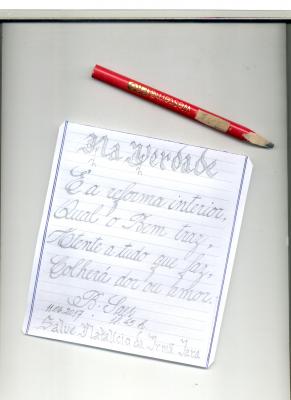 Na Verdade
É a reforma interior,
Qual o Bem traz,
Atente a tudo que faz,
Colherá dor ou amor.
11.06.2017
Salve Natalício da Irmã Iara